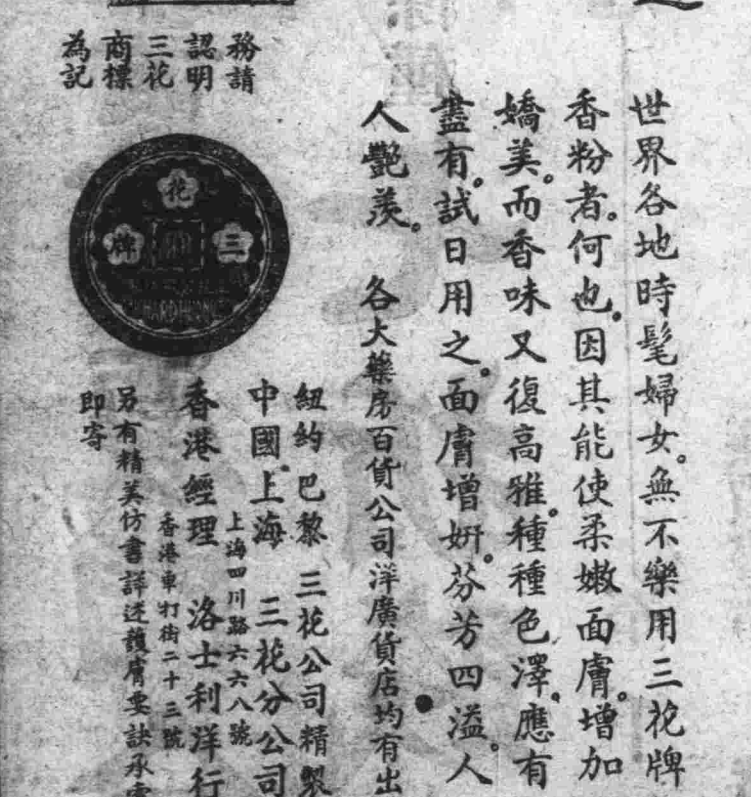 世界各地時髦婦女。無不樂用三花牌
香粉者。何也。因其能使柔嫩面膚。增加
嬌美。而香味又復高雅。種種色澤。應有
盡有。試日用之。面膚增妍。芬芳四溢。人
人艷羨。 各大藥房百貨公司洋廣貨店均有出
紐約巴黎 三花公司精製
中國上海 三花分公司
上海四川路六六八號
香港經理 洛士利洋行
香港車打街二十三號
另有精美仿書詳述護膚要訣承索
即寄
務請
認明
三花
商標
為記
花
三
牌